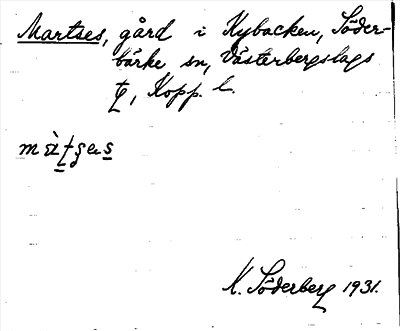 Martses, gård i Nybacken, Söder-
bärke sn, Västerbergslags
tg, Kopp. l.
K. Söderberg 1931.